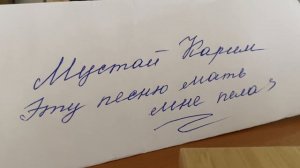 Мустай Карим
Эту песню мать
мне пела